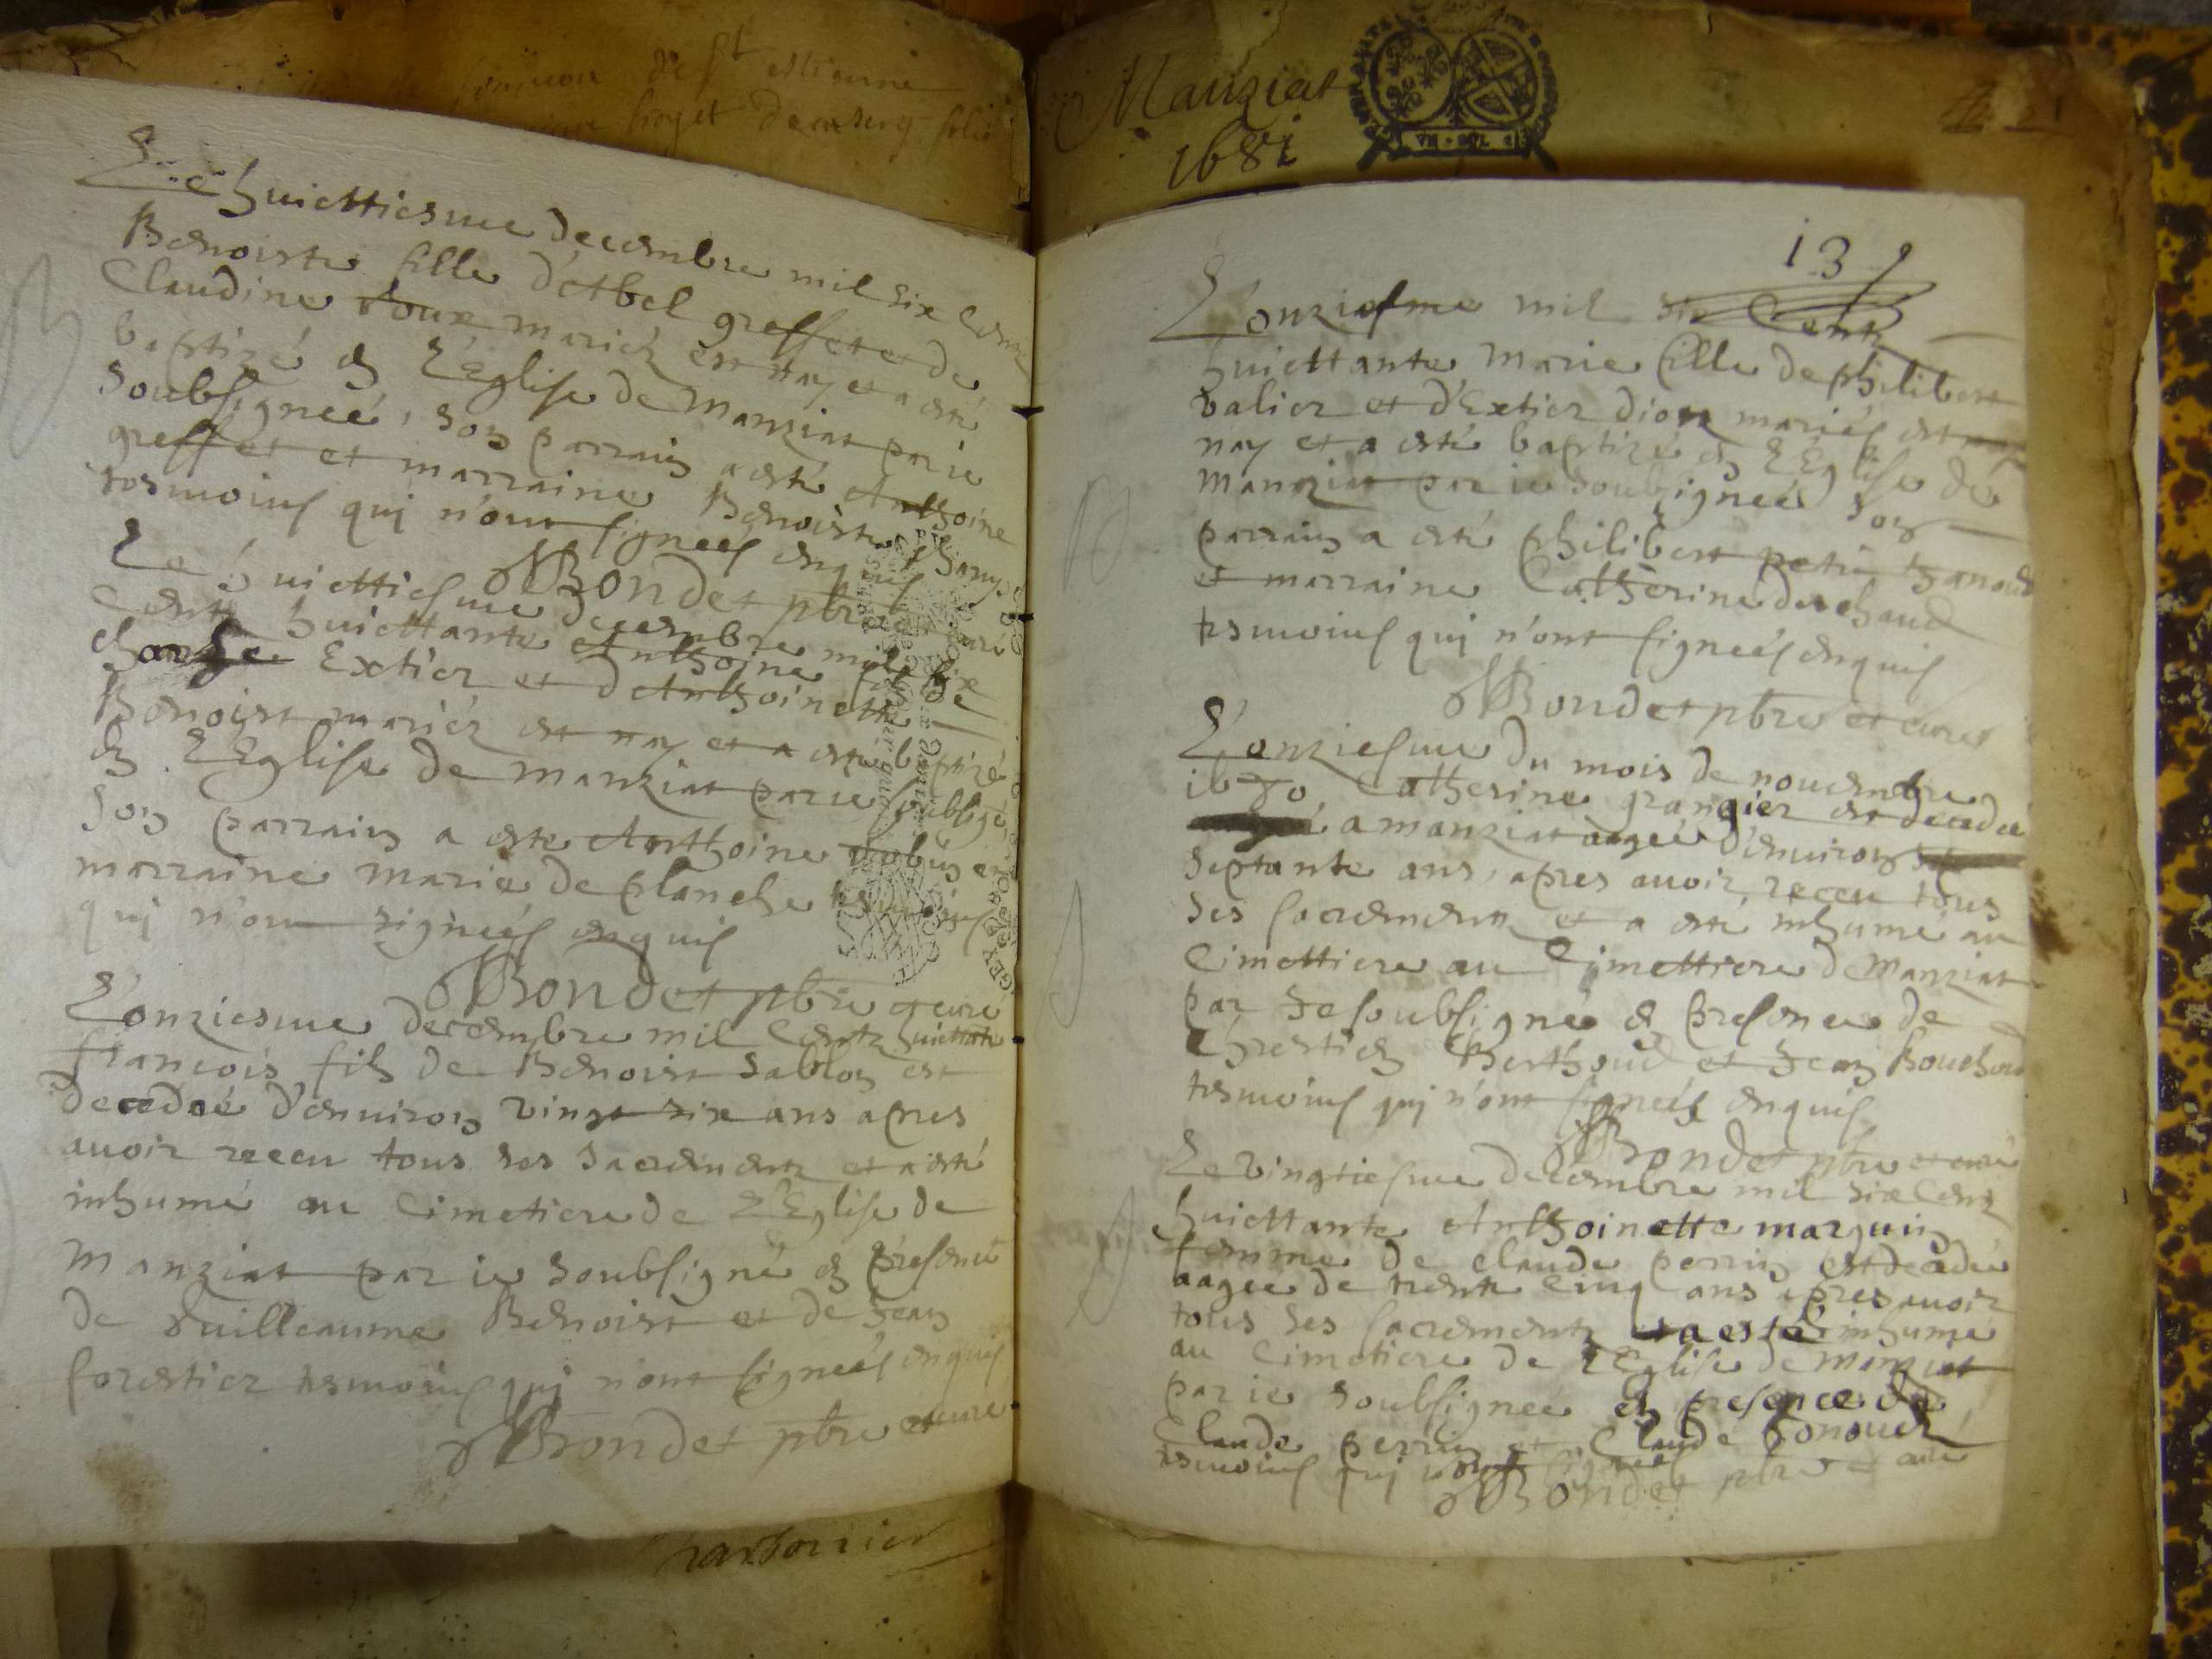 Le huiettiesme decembre mil six Centz
Benoiste fille d'Abel greffet et de
Claudine Roux mariéz est nay et a esté
baptizé en L'Eglise de Manziat par ie
soubsigneé, son parrain a esté Anthoine
greffet et marraine Benoiste
tesmoins qui n'ont signeés enquis
Bondet pbre et curé
Le huiettiesme decembre mil six
Centz huiettante Anthoine fils de
Extier et d'Anthoinette
Benoist mariéz est nay et a esté baptizé
en L'Eglise de Manziat par ie soubsigné
son parrain a esté Anthoine et
marraine marie de planche tesmoins
qui n'ont signeés enquis
Bondet pbre et curé
L'onziesme decembre mil Centz huiettante
francois fils de Benoist Sablon est
decedeé d'environ vingt six ans apres
avoir receu tous ses sacrements et a esté
inhumé au Cimetiere de L'Eglise de
Manziat par ie soubsigné en presence
de Guilleaume Benoist et de Jean
forestier tesmoins qui n'ont signeés enquis
Bondet pbre et curé
Manziat
1681
13
L'onziesme mil six Centz
huiettante Marie fille de philibert
valier et d'Extier dion mariés est
nay et a esté baptizé en L'Eglise de
Manziat par ie soubzigneé son
parrain a esté philibert petit
et marraine Catherine
tesmoins qui n'ont signeés enquis
Bondet pbre et curé
L'onziesme du mois de novembre
1680 Catherine grangier est decedeé
a manziat aageé d'environ
septante ans, apres avoir receu tous
ses sacrements et a esté inhumé au
Cimettiere au Cimettiere de Manziat
par Je soubsigné en presence de
Chrestien Berthoud et Jean
tesmoins qui n'ont signeés enquis
Bondet pbre et curé
Le vingtiesme decembre mil six Centz
huiettante Anthoinette marguin
femme de claude perrin est decedeé
aagee de trente Cinq ans apres avoir
tous ses sacrements et a esté inhumé
au Cimetiere de L'Eglise de Manziat
par ie soubsigneé en presence de
Claude perrin et Claude
tesmoins qui n'ont signeés
Bondet pbre et curé